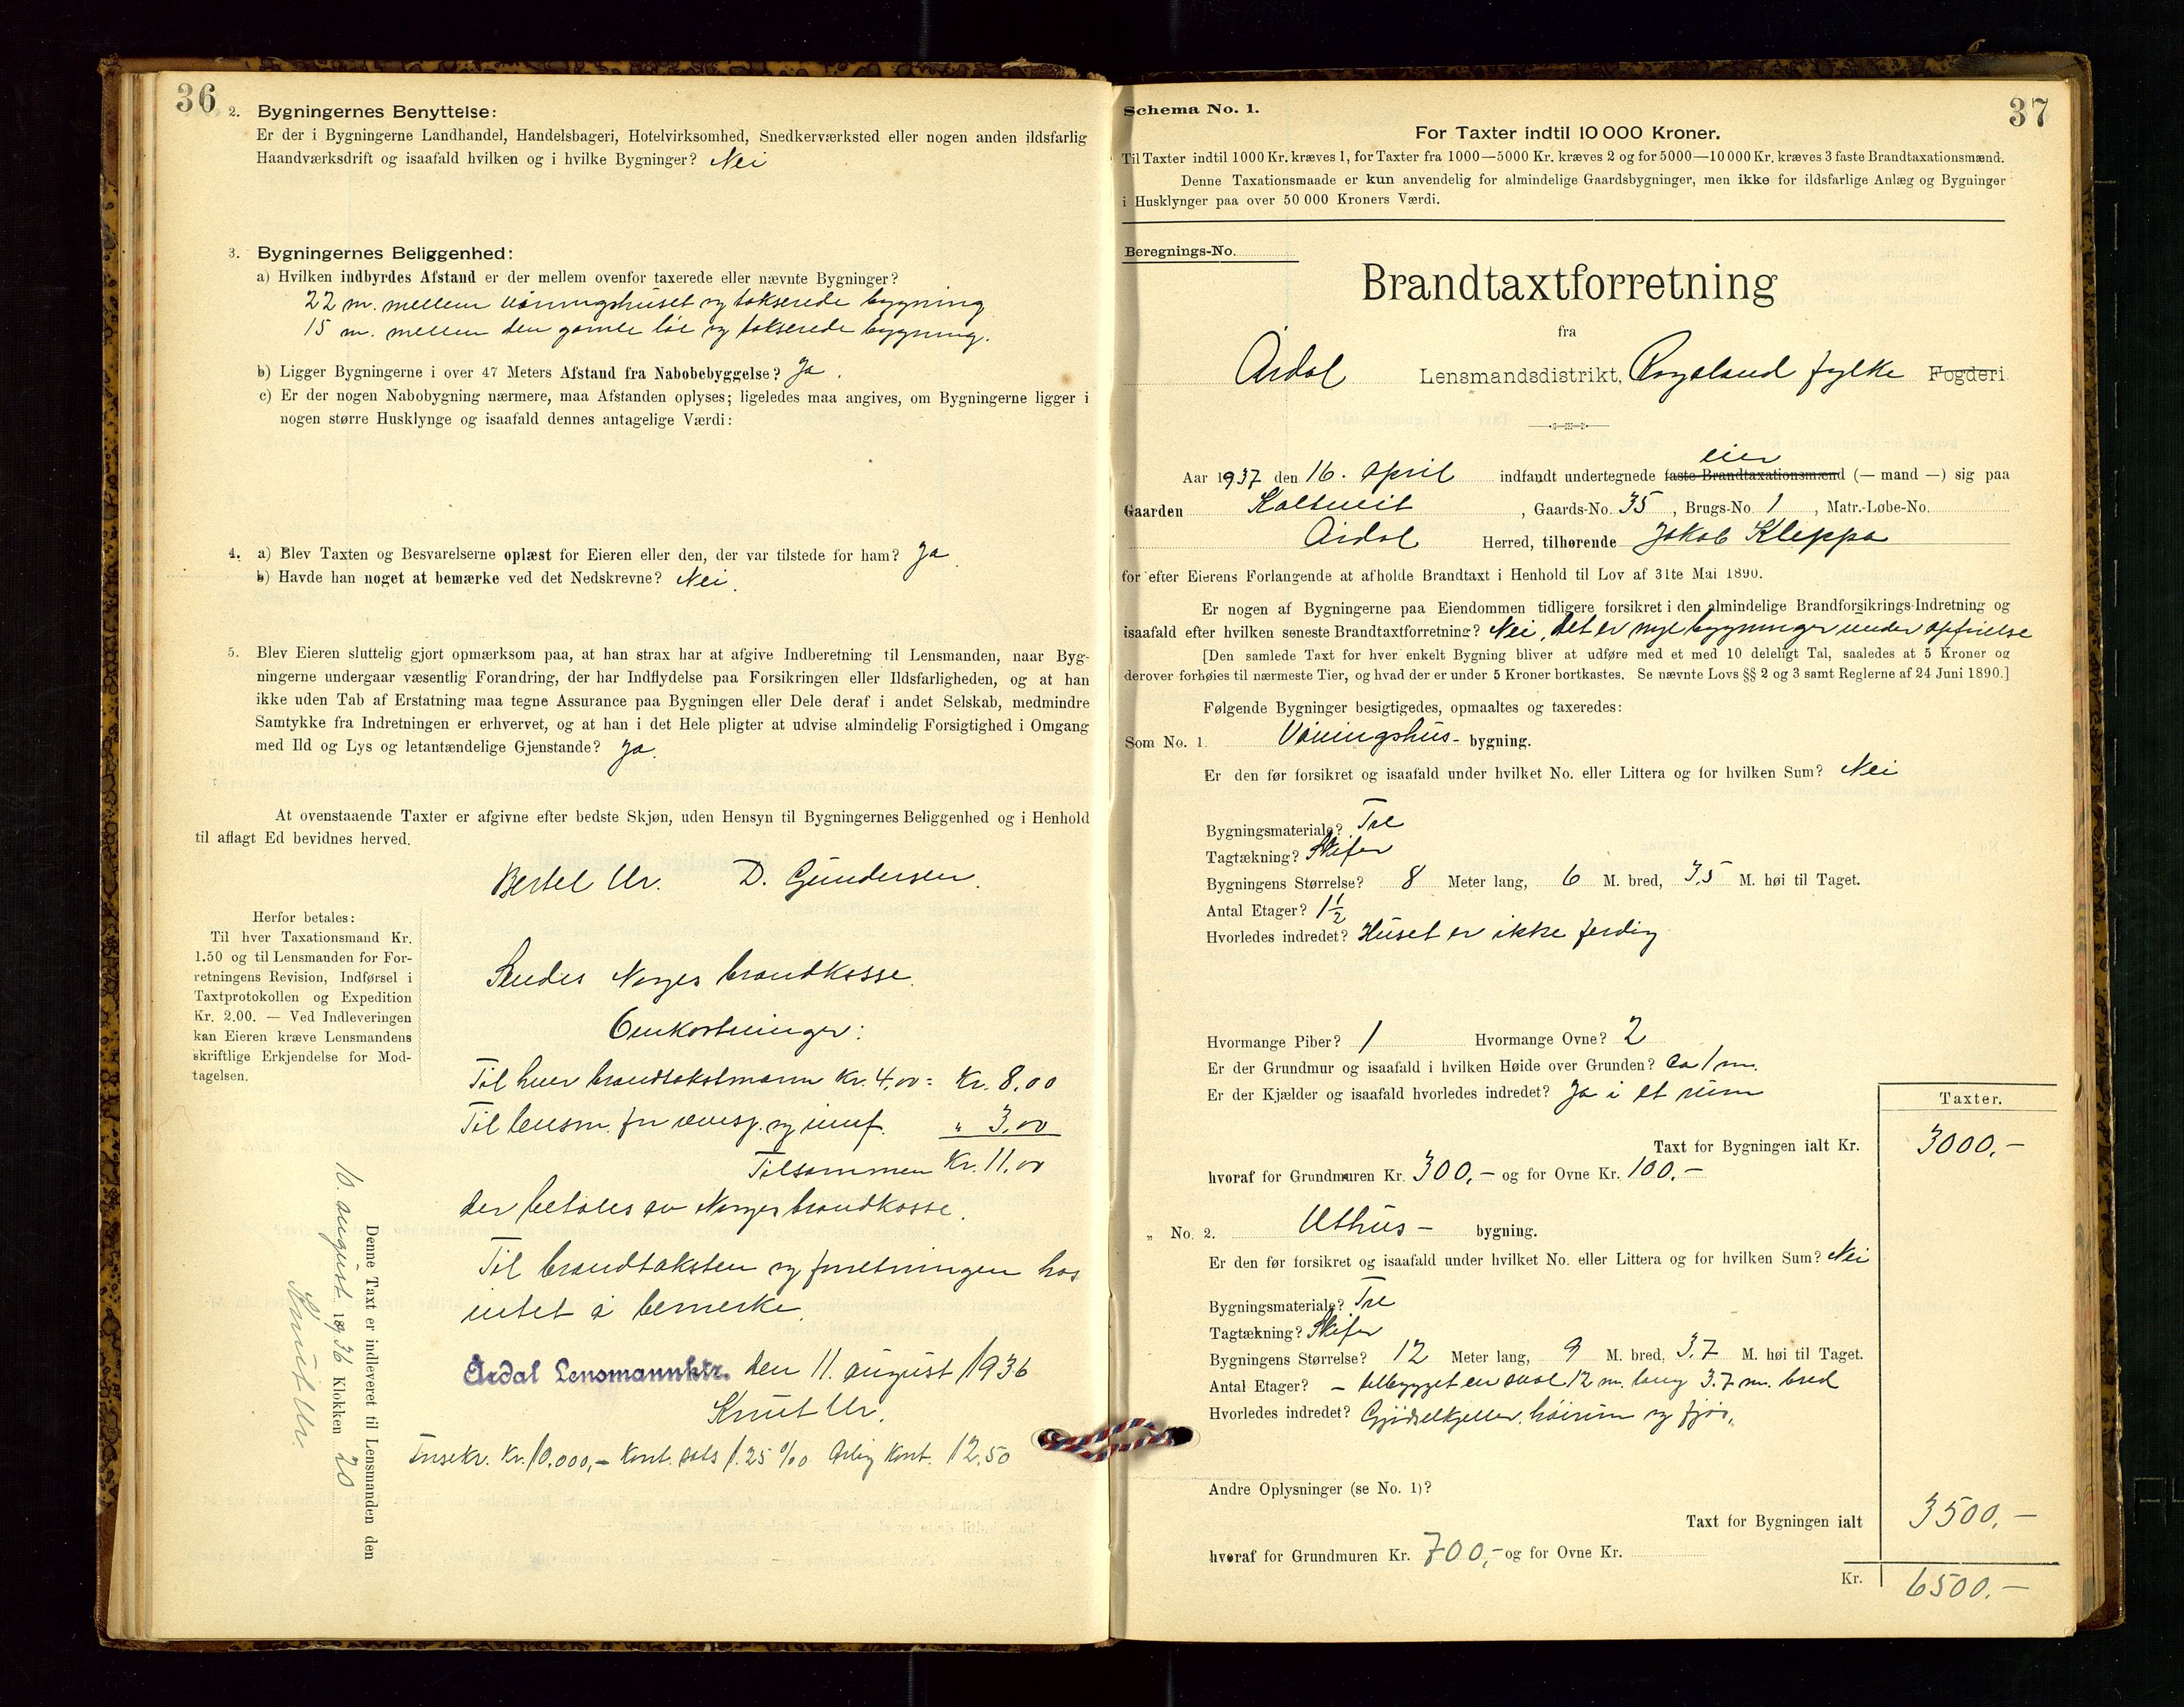 36
2. Bygningernes Benyttelse:
Er der i Bygningerne Landhandel, Handelsbageri, Hotelvirksomhed, Snedkerværksted eller nogen anden ildsfarlig
Haandværksdrift og isaafald hvilken og i hvilke Bygninger? Nei
3. Bygningernes Beliggenhed:
a) Hvilken indbyrdes Afstand er der mellem ovenfor taxerede eller nævnte Bygninger?
22 m. mellem våningshuset og takserede bygning
15 m. mellem den gamle löe og takserede bygning.
b) Ligger Bygningerne i over 47 Meters Afstand fra Nabobebyggelse? Ja.
c) Er der nogen Nabobygning nærmere, maa Afstanden oplyses; ligeledes maa angives, om Bygningerne ligger i
nogen større Husklynge og isaafald dennes antagelige Værdi:
4. a) Blev Taxten og Besvarelserne oplæst for Eieren eller den, der var tilstede for ham? Ja.
b) Havde han noget at bemærke ved det Nedskrevne? Nei.
5. Blev Eieren sluttelig gjort opmærksom paa, at han strax har at afgive Indberetning til Lensmanden, naar Byg-
ningerne undergaar væsentlig Forandring, der har Indflydelse paa Forsikringen eller Ildsfarligheden, og at han
ikke uden Tab af Erstatning maa tegne Assurance paa Bygningen eller Dele deraf i andet Selskab, medmindre
Samtykke fra Indretningen er erhvervet, og at han i det Hele pligter at udvise almindelig Forsigtighed i Omgang
med Ild og Lys og letantændelige Gjenstande? Ja.
At ovenstaaende Taxter er afgivne efter bedste Skjøn, uden Hensyn til Bygningernes Beliggenhed og i Henhold
til aflagt Ed bevidnes herved.
Bertel Ur. D. Gundersen.
Herfor betales:
Til hver Taxationsmand Kr.
1.50 og til Lensmanden for For-
retningens Revision, Indførsel i
Taxtprotokollen og Expedition
Kr. 2.00. — Ved Indleveringen
kan Eieren kræve Lensmandens
skriftlige Erkjendelse for Mod-
tagelsen.
Sendes Norges brandkasse.
Omkostninger:
Til hver brandtakstmann kr. 4,00 = Kr. 8,00
Til lensm. for revisj. og innf. " 3,00
Tilsammen Kr. 11,00
der betales av Norges brandkasse.
Til brandtaksten og forretningen has
intet å bemerke.
Årdal Lensmannktr. den 11. august 1936
Knut Ur.
Insekr. Kr. 10.000,- Kont. sats 1.25 ‰ Årlig Kont. 12.50
Denne Taxt er indleveret til Lensmanden den
10. august 1936 Klokken 20
Knut Ur.
37
Schema No. 1.
For Taxter indtil 10 000 Kroner.
Til Taxter indtil 1000 Kr. kræves 1, for Taxter fra 1000—5000 Kr. kræves 2 og for 5000—10 000 Kr. kræves 3 faste Brandtaxationsmænd.
Denne Taxationsmaade er kun anvendelig for almindelige Gaardsbygninger, men ikke for ildsfarlige Anlæg og Bygninger
i Husklynger paa over 50 000 Kroners Værdi.
Beregnings-No.
Brandtaxtforretning
fra
Årdal Lensmandsdistrikt, Rogaland fylke Fogderi
eier
Aar 1937 den 16. april indfandt undertegnede faste Brandtaxationsmænd (— mand —) sig paa
Gaarden Kaltveit, Gaards-No. 35, Brugs-No. 1, Matr.-Løbe-No.
Årdal Herred, tilhørende Jakob Kleppa
for efter Eierens Forlangende at afholde Brandtaxt i Henhold til Lov af 31te Mai 1890.
Er nogen af Bygningerne paa Eiendommen tidligere forsikret i den almindelige Brandforsikrings-Indretning og
isaafald efter hvilken seneste Brandtaxtforretning? Nei, det er nye bygninger under opførelse
[Den samlede Taxt for hver enkelt Bygning bliver at udføre med et med 10 deleligt Tal, saaledes at 5 Kroner og
derover forhøies til nærmeste Tier, og hvad der er under 5 Kroner bortkastes. Se nævnte Lovs §§ 2 og 3 samt Reglerne af 24 Juni 1890.]
Følgende Bygninger besigtigedes, opmaaltes og taxeredes:
Som No. 1. Våningshus- bygning.
Er den før forsikret og isaafald under hvilket No. eller Littera og for hvilken Sum? Nei
Bygningsmateriale? Tre
Tagtækning? Skifer
Bygningens Størrelse? 8 Meter lang, 6 M. bred, 3,5 M. høi til Taget.
Antal Etager? 1½
Hvorledes indredet? Huset er ikke ferdig
Hvormange Piber? 1 Hvormange Ovne? 2
Er der Grundmur og isaafald i hvilken Høide over Grunden? ca 1 m.
Er der Kjælder og isaafald hvorledes indredet? Ja i et rum
Taxter.
Taxt for Bygningen ialt Kr. 3000,-
hvoraf for Grundmuren Kr. 300,- og for Ovne Kr. 100,-
„ No. 2. Uthus- bygning.
Er den før forsikret og isaafald under hvilket No. eller Littera og for hvilken Sum? Nei
Bygningsmateriale? Tre
Tagtækning? Skifer
Bygningens Størrelse? 12 Meter lang, 9 M. bred, 3,7 M. høi til Taget.
Antal Etager? - tilbygget en sval 12 m. lang 3.7 m. bred
Hvorledes indredet? Gjødselkjeller, höirum og fjös,
Andre Oplysninger (se No. 1)?
Taxt for Bygningen ialt 3500,-
hvoraf for Grundmuren Kr. 700,- og for Ovne Kr.
Kr. 6500,-